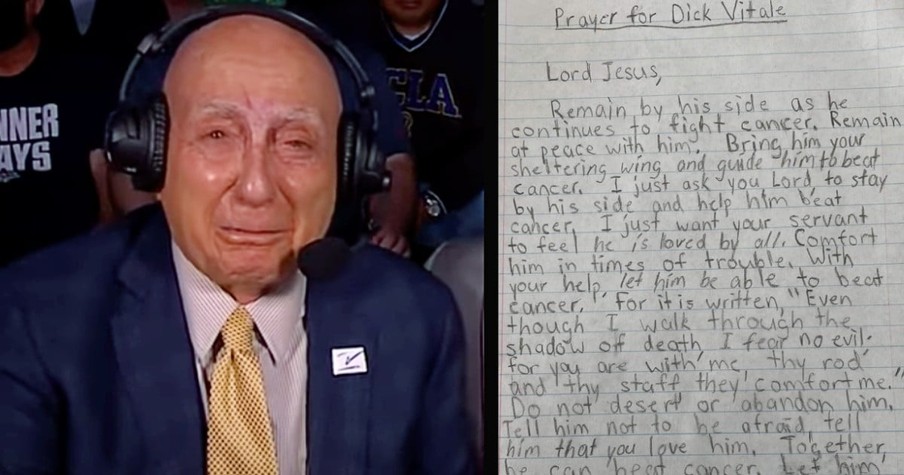 NNER
AYS
CLA
Prayer for Dick Vitale
Lord Jesus,
Remain by his side as he
continues to fight cancer. Remain
at peace with him. Bring him your
sheltering wing and guide him to beat
cancer. I just ask you Lord to stay
by his side and help him beat
cancer. I just want your servant
to feel he is loved by all. Comfort
him in times of trouble. With
your help, let him be able to beat
cancer. For it is written, "Even
though I walk through the
shadow of death I fear no evil.
for you are with me, thy rod
and thy staff they comfort me."
Do not desert or abandon him.
Tell him not to be afraid, tell
him that you love him. Together,
he can beat cancer. Let him